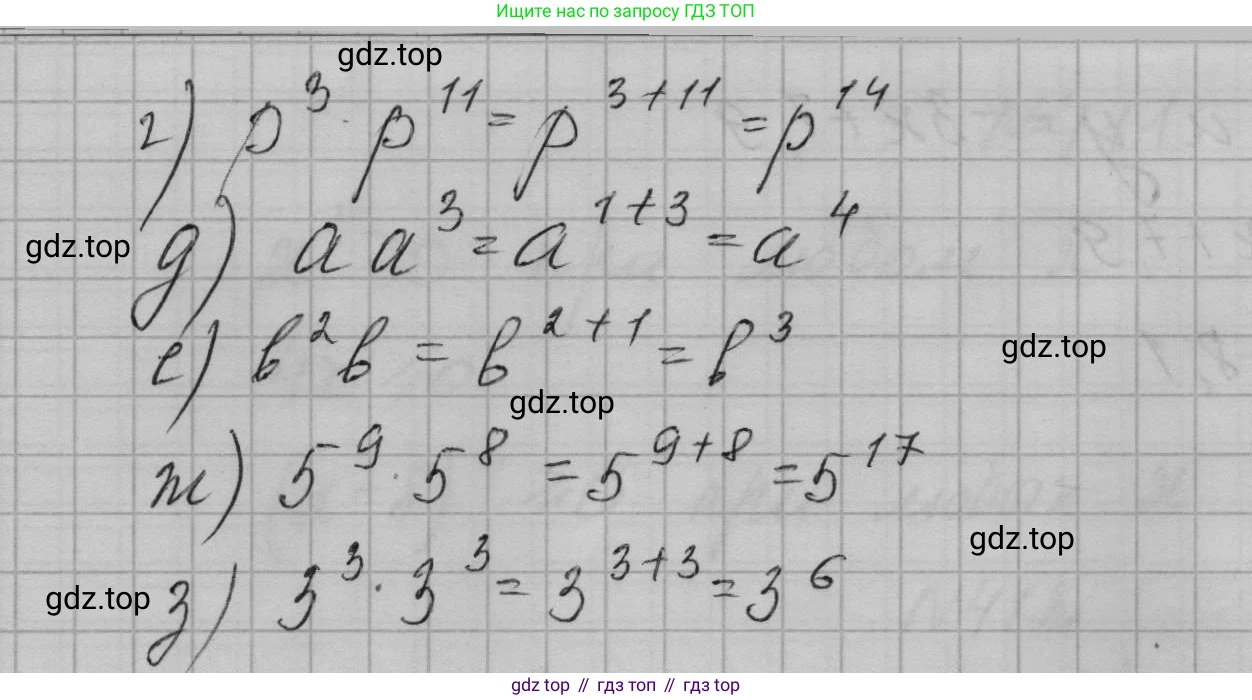 Ищите нас по запросу ГДЗ ТОП
gdz.top
г) p³ · p¹¹ = p³⁺¹¹ = p¹⁴
gdz.top
д) a a³ = a¹⁺³ = a⁴
е) b² b = b²⁺¹ = b³
gdz.top
gdz.top
ж) 5⁹ · 5⁸ = 5⁹⁺⁸ = 5¹⁷
gdz.top
gdz.top
з) 3³ · 3³ = 3³⁺³ = 3⁶
gdz top // гдз топ // гдз top